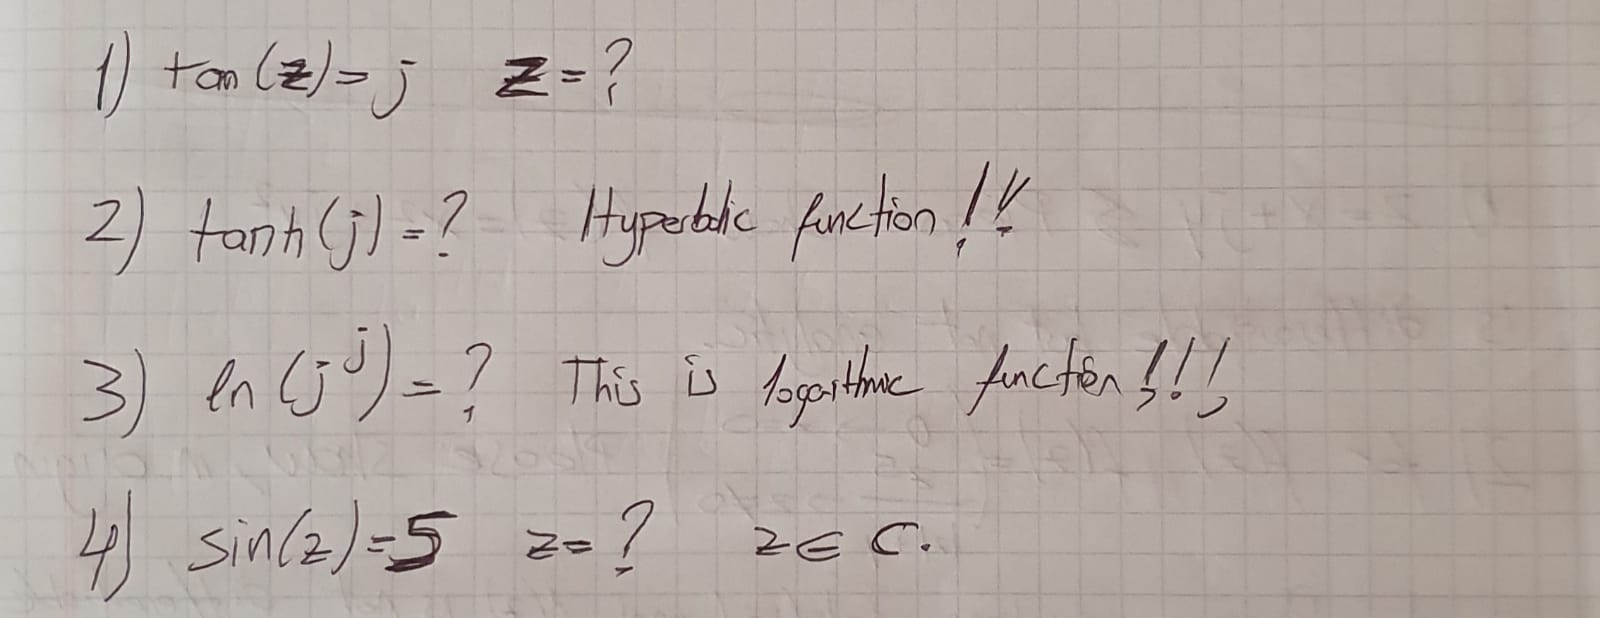 1) tan(z)=j z=?
2) tanh(j)=? Hyperbolic function!!!
3) ln(j^j)=? This is logarithmic function!!!
4) sin(z)=5 z=? z∈ C.